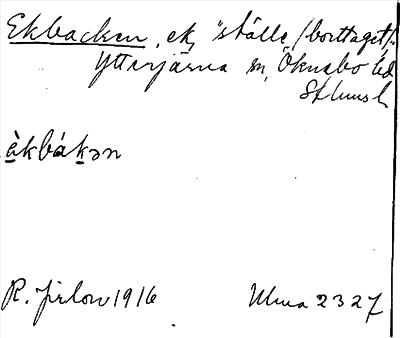 Ekbacken, ek, "ställe /borttaget/.
Ytterjärna sn, Öknebo hd
Sthlms l.
èkbákən
R. Jirlow 1916 Ulma 2327